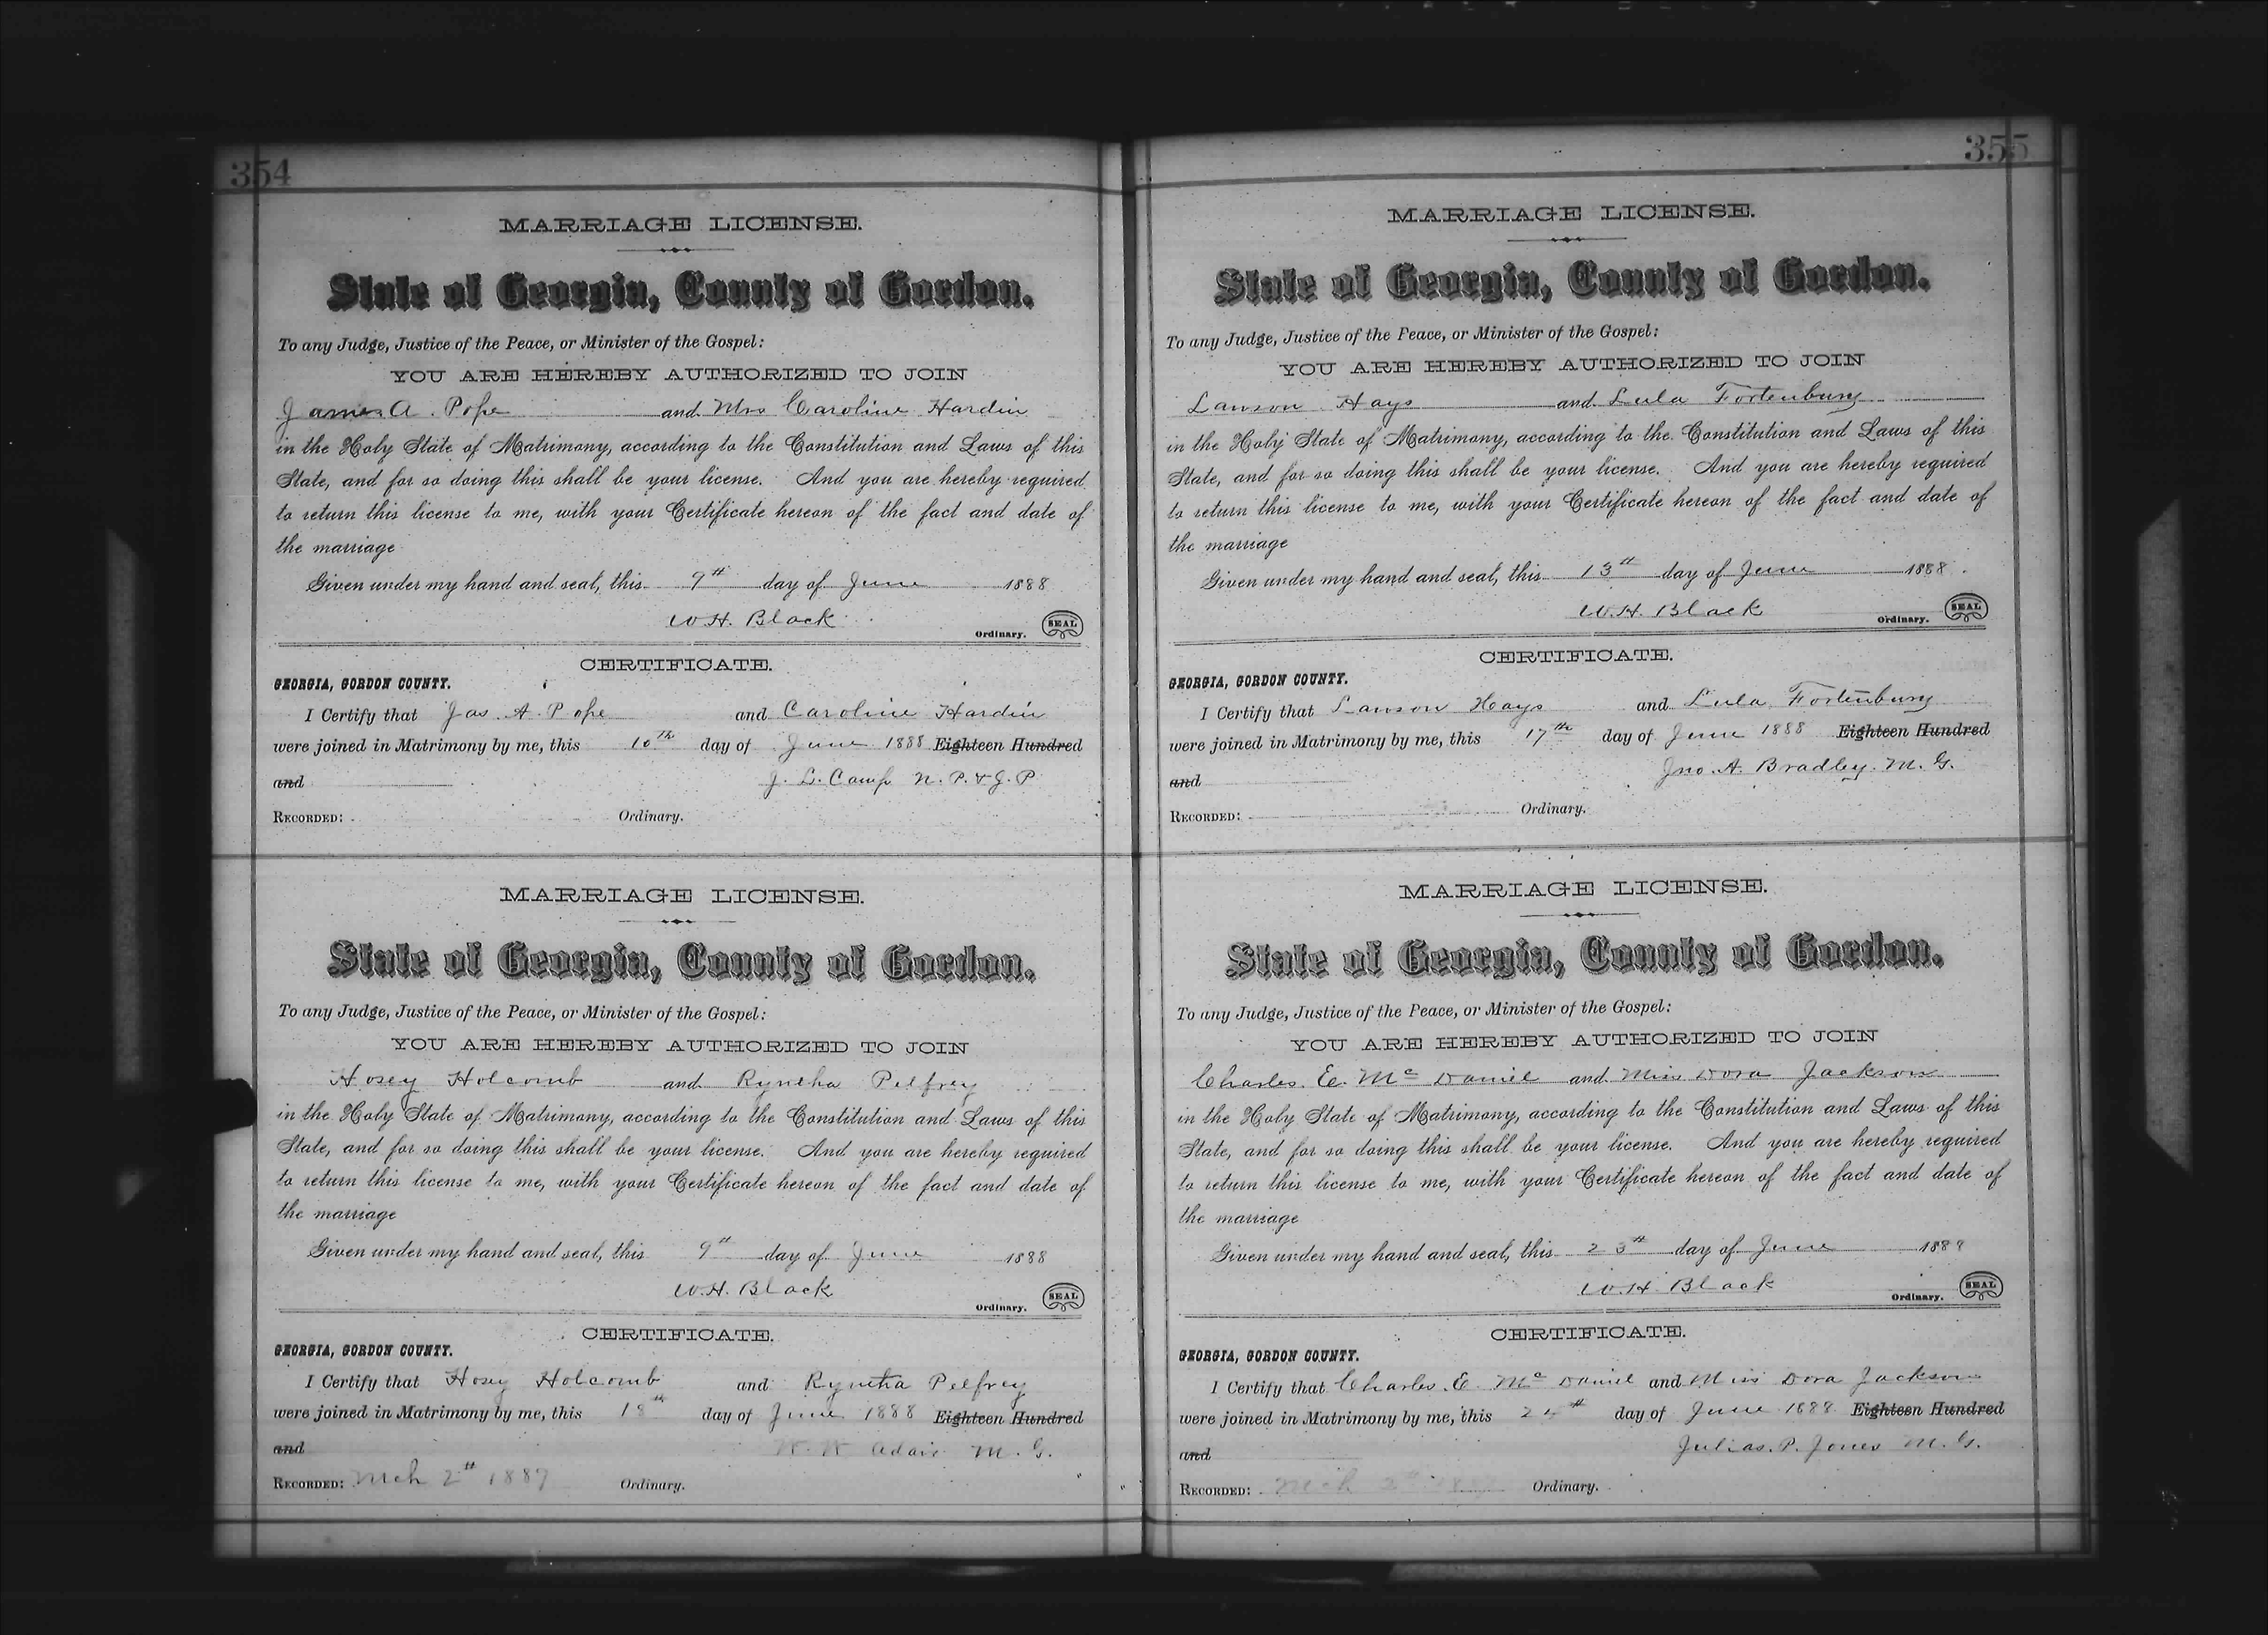 354
MARRIAGE LICENSE.
State of Georgia, County of Gordon.
To any Judge, Justice of the Peace, or Minister of the Gospel:
YOU ARE HEREBY AUTHORIZED TO JOIN
James A. Pope and Mrs Caroline Hardin
in the Holy State of Matrimony, according to the Constitution and Laws of this
State, and for so doing this shall be your license. And you are hereby required
to return this license to me, with your Certificate hereon of the fact and date of
the marriage
Given under my hand and seal, this 9th day of June 1888
W.H. Black
Ordinary. SEAL
CERTIFICATE.
GEORGIA, GORDON COUNTY.
I Certify that Jas. A. Pope and Caroline Hardin
were joined in Matrimony by me, this 10th day of June 1888 Eighteen Hundred
and J. L. Camp N. P. & J. P.
RECORDED: Ordinary.
MARRIAGE LICENSE.
State of Georgia, County of Gordon.
To any Judge, Justice of the Peace, or Minister of the Gospel:
YOU ARE HEREBY AUTHORIZED TO JOIN
Hosey Holcomb and Ryntha Pelfrey
in the Holy State of Matrimony, according to the Constitution and Laws of this
State, and for so doing this shall be your license. And you are hereby required
to return this license to me, with your Certificate hereon of the fact and date of
the marriage
Given under my hand and seal, this 9th day of June 1888
W.H. Black
Ordinary. SEAL
CERTIFICATE.
GEORGIA, GORDON COUNTY.
I Certify that Hosey Holcomb and Ryntha Pelfrey
were joined in Matrimony by me, this 18th day of June 1888 Eighteen Hundred
and W. W. Adair M. G.
RECORDED: Mch 2th 1889 Ordinary.
355
MARRIAGE LICENSE.
State of Georgia, County of Gordon.
To any Judge, Justice of the Peace, or Minister of the Gospel:
YOU ARE HEREBY AUTHORIZED TO JOIN
Lawson Hays and Lula Fortenbury
in the Holy State of Matrimony, according to the Constitution and Laws of this
State, and for so doing this shall be your license. And you are hereby required
to return this license to me, with your Certificate hereon of the fact and date of
the marriage
Given under my hand and seal, this 13th day of June 1888.
W.H. Black
Ordinary. SEAL
CERTIFICATE.
GEORGIA, GORDON COUNTY.
I Certify that Lawson Hays and Lula Fortenbury
were joined in Matrimony by me, this 17th day of June 1888 Eighteen Hundred
and Jno. A. Bradley. M. G.
RECORDED: Ordinary.
MARRIAGE LICENSE.
State of Georgia, County of Gordon.
To any Judge, Justice of the Peace, or Minister of the Gospel:
YOU ARE HEREBY AUTHORIZED TO JOIN
Charles. E. Mc Daniel and Miss Dora Jackson
in the Holy State of Matrimony, according to the Constitution and Laws of this
State, and for so doing this shall be your license. And you are hereby required
to return this license to me, with your Certificate hereon of the fact and date of
the marriage
Given under my hand and seal, this 23th day of June 1888
W.H. Black
Ordinary. SEAL
CERTIFICATE.
GEORGIA, GORDON COUNTY.
I Certify that Charles. E. Mc Daniel and Miss Dora Jackson
were joined in Matrimony by me, this 24th day of June 1888 Eighteen Hundred
and Julias. P. Jones M. G.
RECORDED: Mch 2th Ordinary.